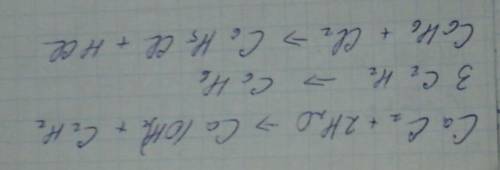 CaC₂ + 2H₂O → Ca(OH)₂ + C₂H₂
3C₂H₂ → C₆H₆
C₆H₆ + Cl₂ → C₆H₅Cl + HCl